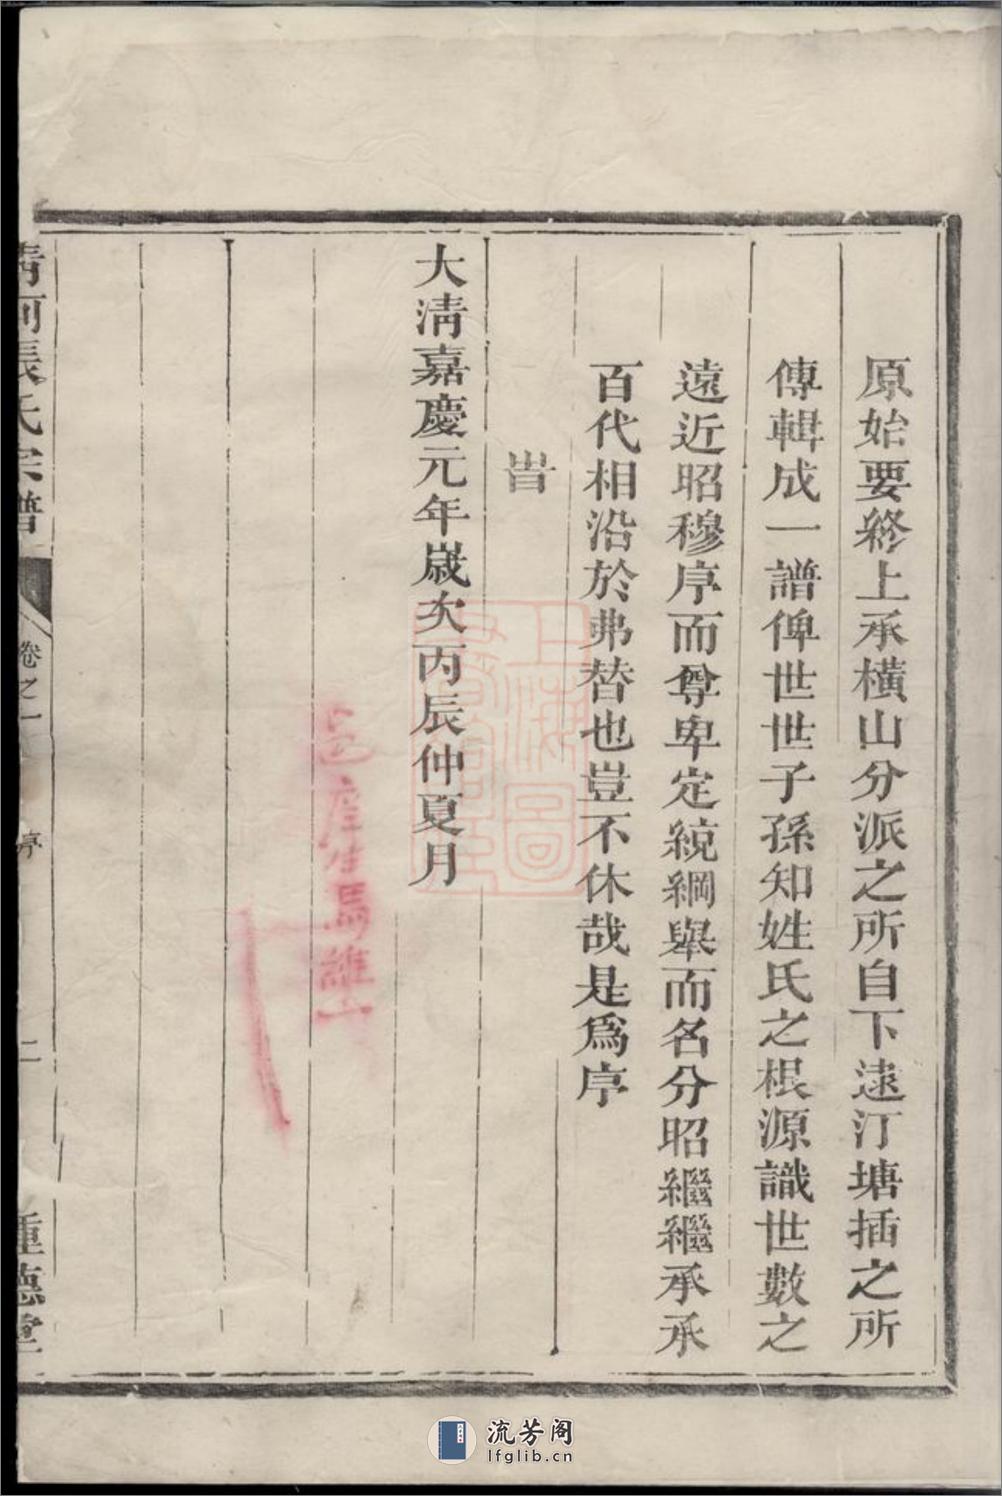 原始要終上承橫山分派之所自下逮汀塘插之所
傳輯成一譜俾世世子孫知姓氏之根源識世數之
遠近昭穆序而尊卑定統綱舉而名分昭繼繼承承
百代相沿於弗替也豈不休哉是爲序
旹
大淸嘉慶元年歲次丙辰仲夏月
邑庠生馬
清河張氏宗譜
卷之一
序
二
種德堂
上海圖書館藏
流芳阁
lfglib.cn